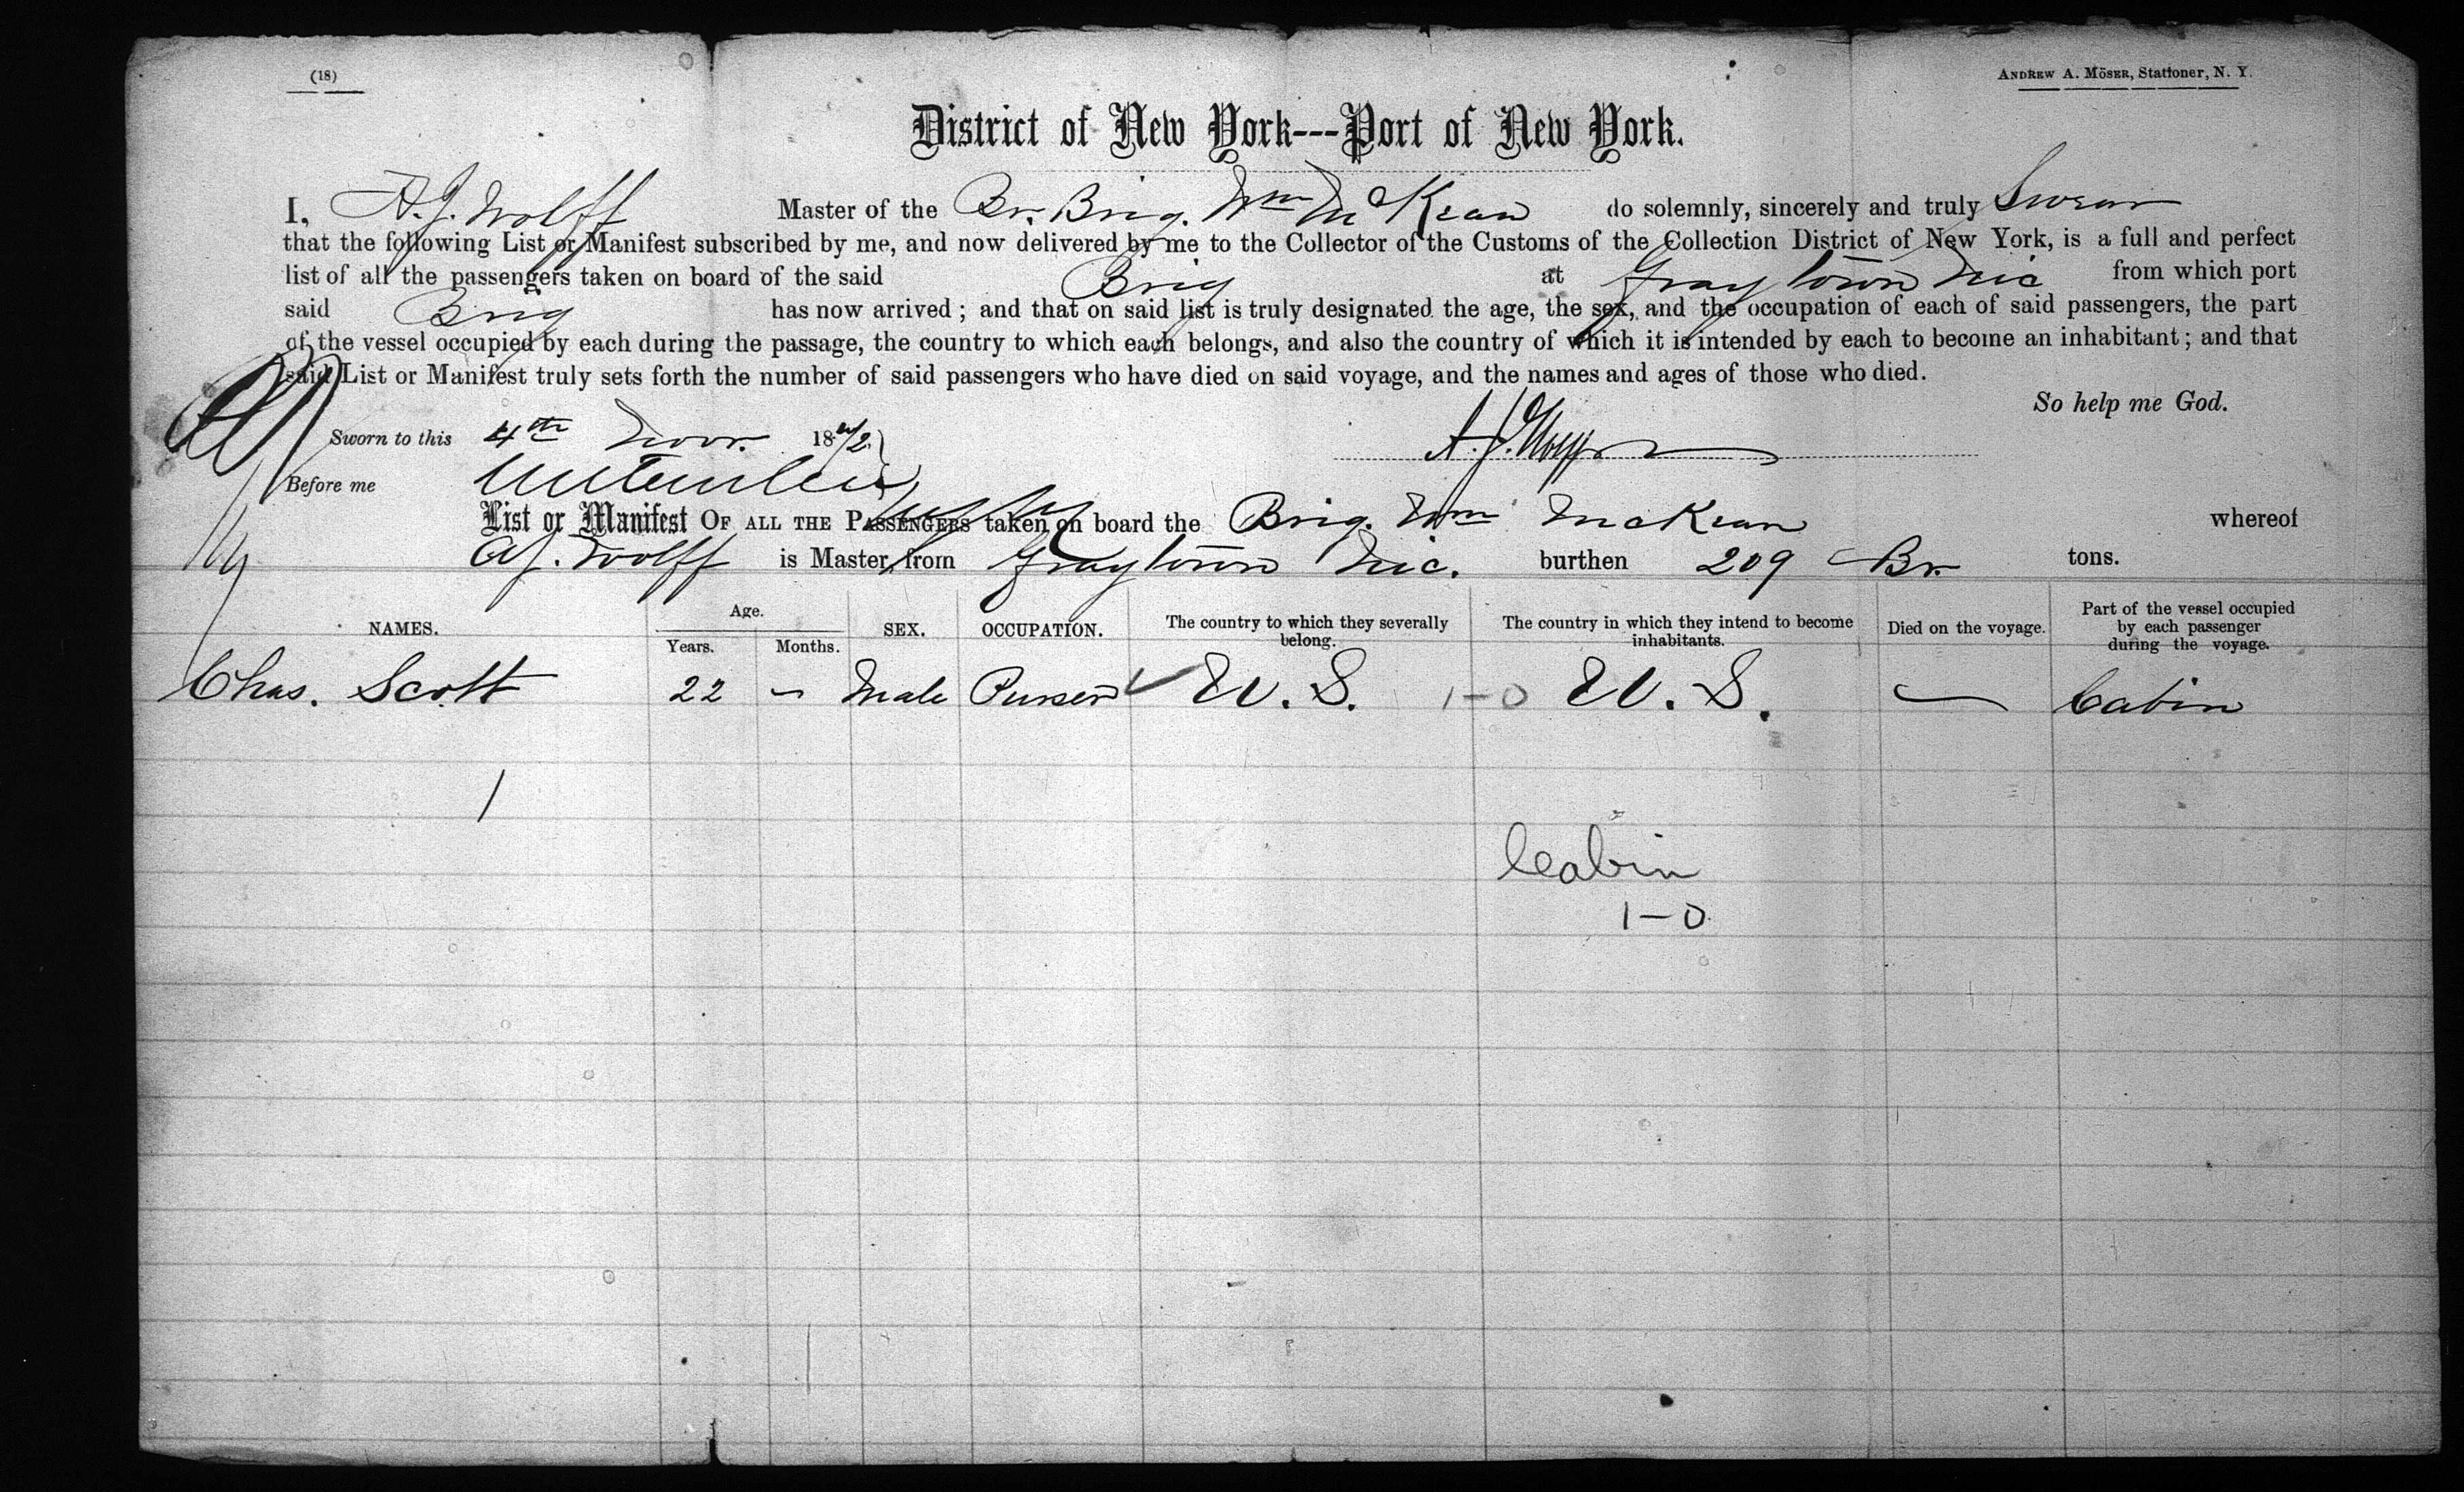 (18)
ANDREW A. MÖSER, Stationer, N. Y.
District of New York---Port of New York.
I, A. J. Wolff Master of the Br. Brig. Wm McKean do solemnly, sincerely and truly Swear
that the following List or Manifest subscribed by me, and now delivered by me to the Collector of the Customs of the Collection District of New York, is a full and perfect
list of all the passengers taken on board of the said Brig at Graytown Nic from which port
said Brig has now arrived; and that on said list is truly designated the age, the sex, and the occupation of each of said passengers, the part
of the vessel occupied by each during the passage, the country to which each belongs, and also the country of which it is intended by each to become an inhabitant; and that
said List or Manifest truly sets forth the number of said passengers who have died on said voyage, and the names and ages of those who died.
So help me God.
Sworn to this 4th Novr. 18 A. J. Wolff
Before me
List or Manifest OF ALL THE PASSENGERS taken on board the Brig. Wm McKean whereof
A J. Wolff is Master, from Graytown Nic. burthen 209 Br. tons.
NAMES. Age. Years. Months. SEX. OCCUPATION. The country to which they severally belong. The country in which they intend to become inhabitants. Died on the voyage. Part of the vessel occupied by each passenger during the voyage.
Chas. Scott 22 - Male Purser ✓ U. S. 1-0 U. S. — Cabin
1
Cabin
1-0